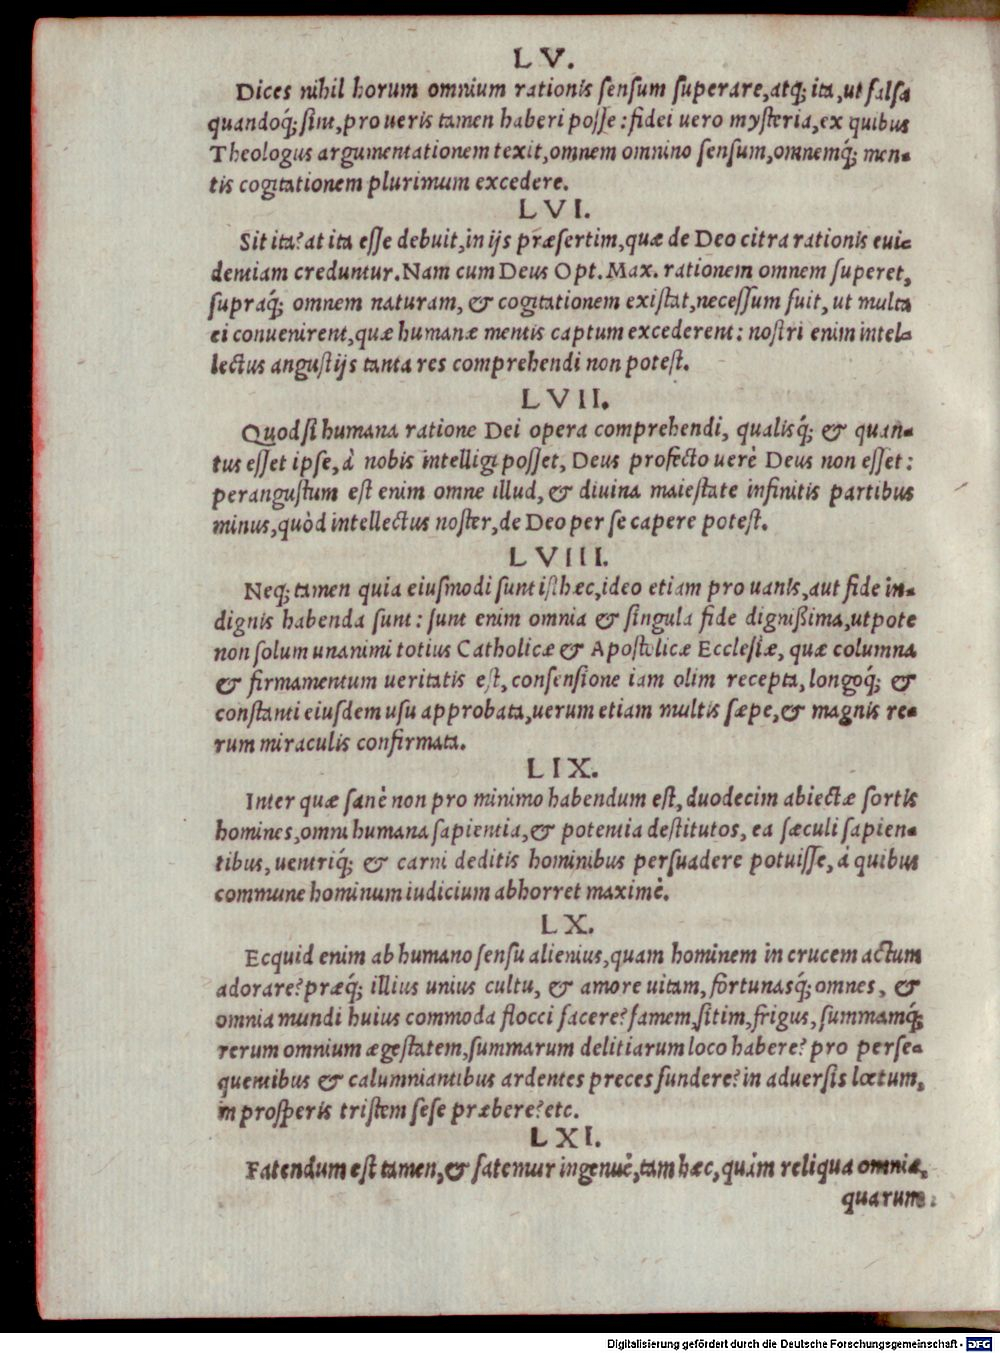 LV.
Dices nihil horum omnium rationis sensum superare, atq; ita, ut falsa
quandoq́; sint, pro ueris tamen haberi posse: fidei uero mysteria, ex quibus
Theologus argumentationem texit, omnem omnino sensum, omnemq́; men-
tis cogitationem plurimum excedere.
LVI.
Sit ita? at ita esse debuit, in ijs præsertim, quæ de Deo citra rationis eui-
dentiam creduntur. Nam cum Deus Opt. Max. rationem omnem superet,
supraq́; omnem naturam, & cogitationem existat, necessum fuit, ut multa
ei conuenirent, quæ humanæ mentis captum excederent: nostri enim intel-
lectus angustijs tanta res comprehendi non potest.
LVII.
Quod si humana ratione Dei opera comprehendi, qualisq́; & quan-
tus esset ipse, à nobis intelligi posset, Deus profecto uerè Deus non esset:
perangustum est enim omne illud, & diuina maiestate infinitis partibus
minus, quòd intellectus noster, de Deo per se capere potest.
LVIII.
Neq; tamen quia eiusmodi sunt isthæc, ideo etiam pro uanis, aut fide in-
dignis habenda sunt: sunt enim omnia & singula fide dignißima, utpote
non solum unanimi totius Catholicæ & Apostolicæ Ecclesiæ, quæ columna
& firmamentum ueritatis est, consensione iam olim recepta, longoq́; &
constanti eiusdem usu approbata, uerum etiam multis sæpe, & magnis re-
rum miraculis confirmata.
LIX.
Inter quæ sanè non pro minimo habendum est, duodecim abiectæ sortis
homines, omni humana sapientia, & potentia destitutos, ea sæculi sapien-
tibus, uentriq́; & carni deditis hominibus persuadere potuisse, à quibus
commune hominum iudicium abhorret maximè.
LX.
Ecquid enim ab humano sensu alienius, quam hominem in crucem actum
adorare? præq́; illius unius cultu, & amore uitam, fortunasq́; omnes, &
omnia mundi huius commoda flocci facere? famem, sitim, frigus, summamq́;
rerum omnium ægestatem, summarum delitiarum loco habere? pro perse-
quentibus & calumniantibus ardentes preces fundere? in aduersis lœtum,
in prosperis tristem sese præbere? etc.
LXI.
Fatendum est tamen, & fatemur ingenuè, tam hæc, quàm reliqua omnia,
quarum
Digitalisierung gefördert durch die Deutsche Forschungsgemeinschaft - DFG